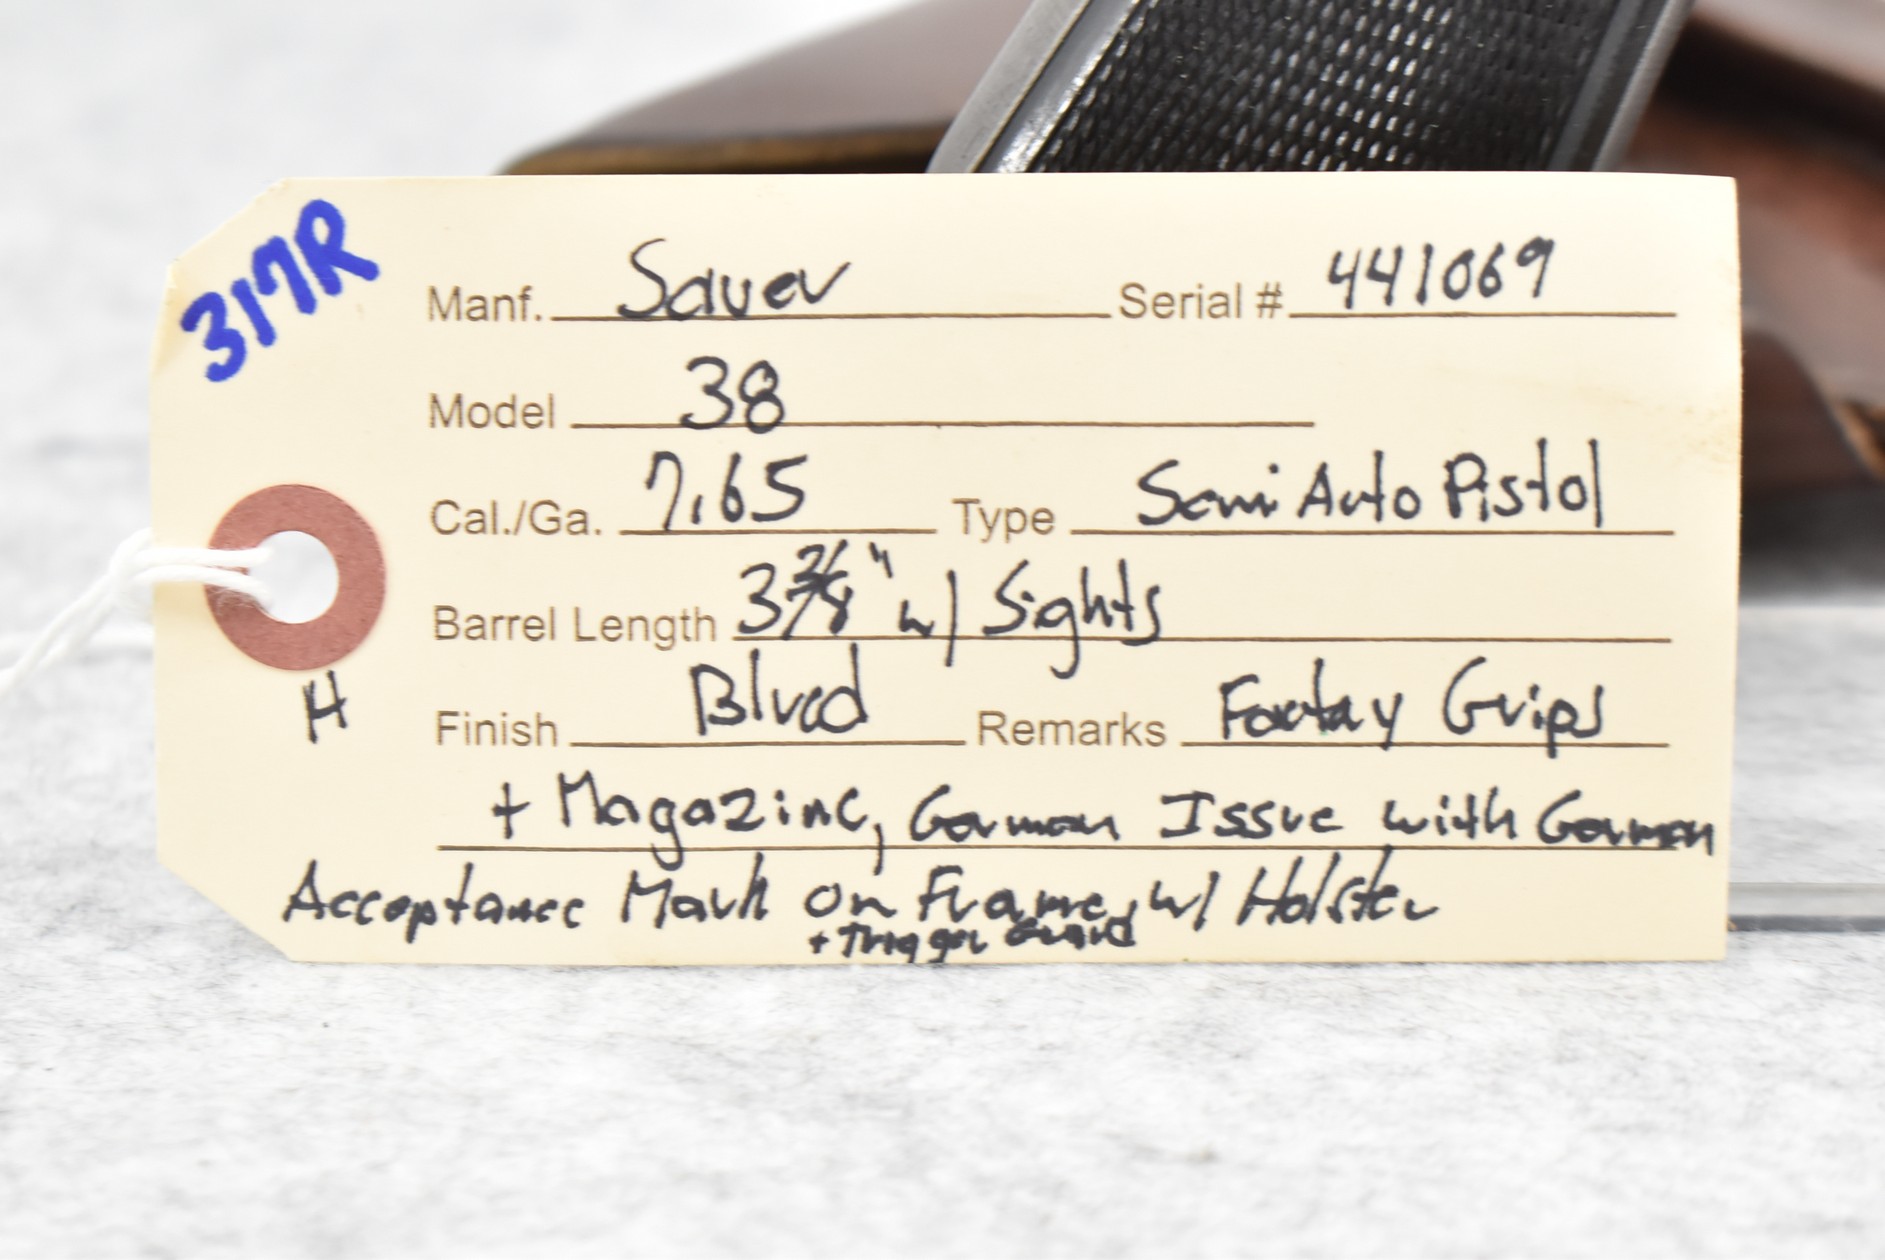 317R
Manf. Sauer Serial # 441069
Model 38
Cal./Ga. 7.65 Type Semi Auto Pistol
Barrel Length 3 " w/ Sights
H
Finish Blued Remarks Factory Grips
+ Magazine, German Issue with German
Acceptance Mark on Frame, w/ Holster
+ Trigger Guard